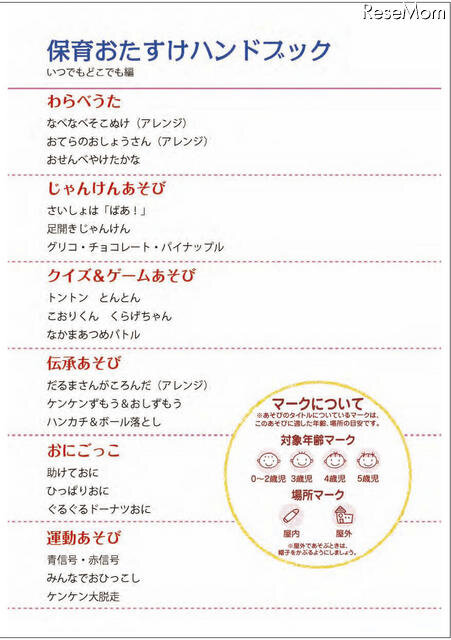 ReseMom
保育おたすけハンドブック
いつでもどこでも編
わらべうた
なべなべそこぬけ（アレンジ）
おてらのおしょうさん（アレンジ）
おせんべやけたかな
じゃんけんあそび
さいしょは「ばあ！」
足開きじゃんけん
グリコ・チョコレート・パイナップル
クイズ＆ゲームあそび
トントン　とんとん
こおりくん　くらげちゃん
なかまあつめバトル
伝承あそび
だるまさんがころんだ（アレンジ）
ケンケンずもう＆おしずもう
ハンカチ＆ボール落とし
おにごっこ
助けておに
ひっぱりおに
ぐるぐるドーナツおに
運動あそび
青信号・赤信号
みんなでおひっこし
ケンケン大脱走
マークについて
※あそびのタイトルについているマークは、
このあそびに適した年齢、場所の目安です。
対象年齢マーク
0〜2歳児　3歳児　4歳児　5歳児
場所マーク
屋内　屋外
※屋外であそぶときは、
帽子をかぶるようにしましょう。